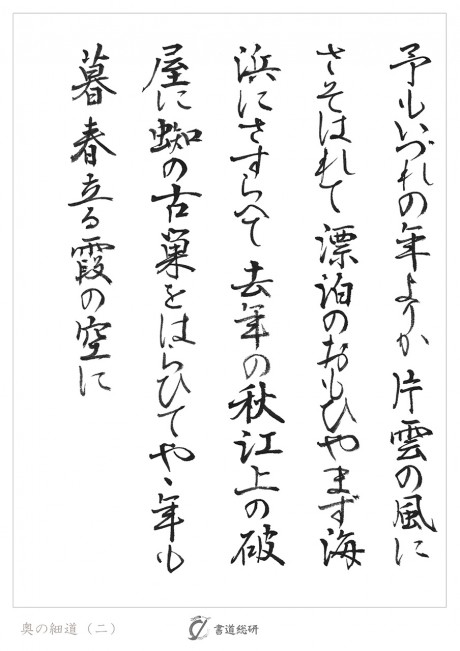 予もいづれの年よりか片雲の風に
さそはれて漂泊のおもひやまず海
浜にさすらへて去年の秋江上の破
屋に蜘の古巣をはらひてやゝ年も
暮春立る霞の空に
奥の細道（二）
書道総研